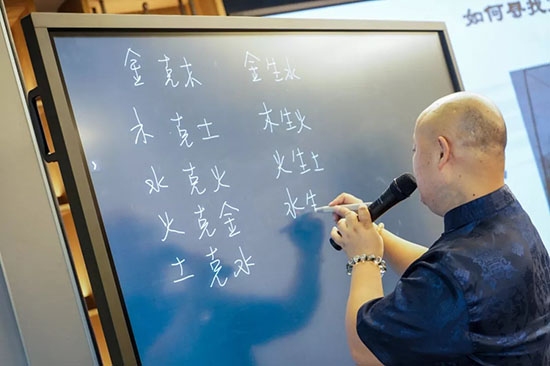 如何寻找
金克木 金生水
木克土 木生火
水克火 火生土
火克金 水生
土克水